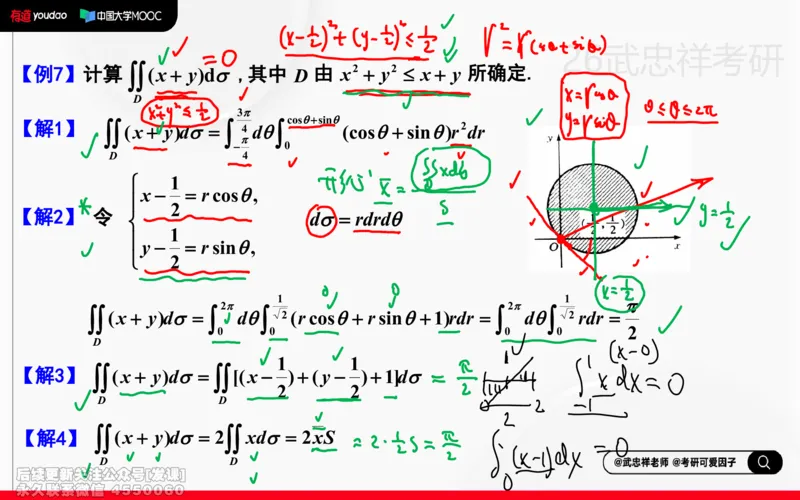 有道 youdao 中国大学MOOC
(x-1/2)²+(y-1/2)²≤1/2 r²=r(cosθ+sinθ)
26武忠祥考研
【例7】计算 ∬_D (x+y)dσ, 其中 D 由 x²+y²≤x+y 所确定. =0
x²+y²≤1/2 x=rcosθ y=rsinθ 0≤θ≤2π
【解1】 ∬_D (x+y)dσ = ∫_{-π/4}^{3π/4} dθ ∫_0^{cosθ+sinθ} (cosθ+sinθ)r²dr
形心 x̄=∬_D xdσ/S
【解2】令 { x-1/2=rcosθ, y-1/2=rsinθ, dσ=rdrdθ
y O (1/2,1/2) x y=1/2
x=1/2
∬_D (x+y)dσ = ∫_0^{2π} dθ ∫_0^{1/√2} (rcosθ+rsinθ+1)rdr = ∫_0^{2π} dθ ∫_0^{1/√2} rdr = π/2
0 0
【解3】 ∬_D (x+y)dσ = ∬_D [(x-1/2)+(y-1/2)+1]dσ = π/2
(x-0)
∫_{-1}^1 xdx=0
0 2
2
【解4】 ∬_D (x+y)dσ = 2∬_D xdσ = 2x̄S = 2·1/2 S = π/2
∫_0 (x-1)dx =0
@武忠祥老师 @考研可爱因子
后续更新关注公众号[发课]
永久联系微信 4550060